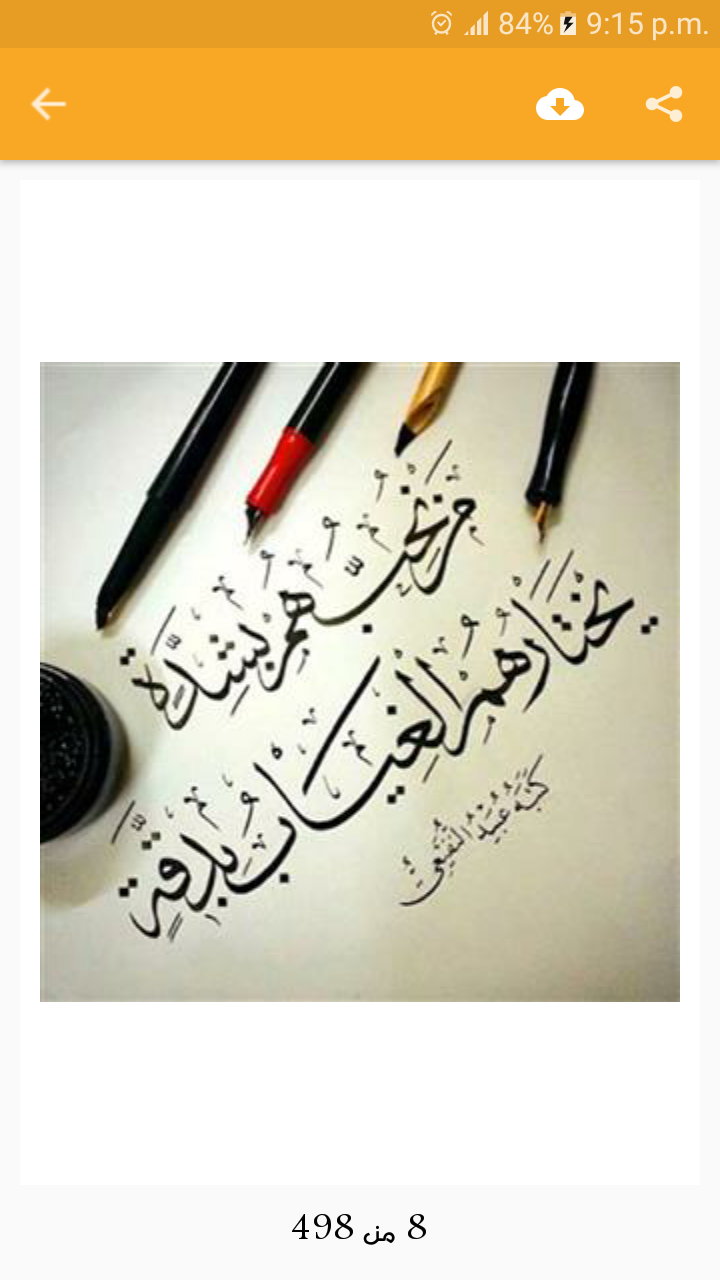 84% 9:15 p.m.
من نحبّهم بشدّة
يختارهم الغياب بدقّةٍ
كتبه عبيد النفيعي
8 من 498